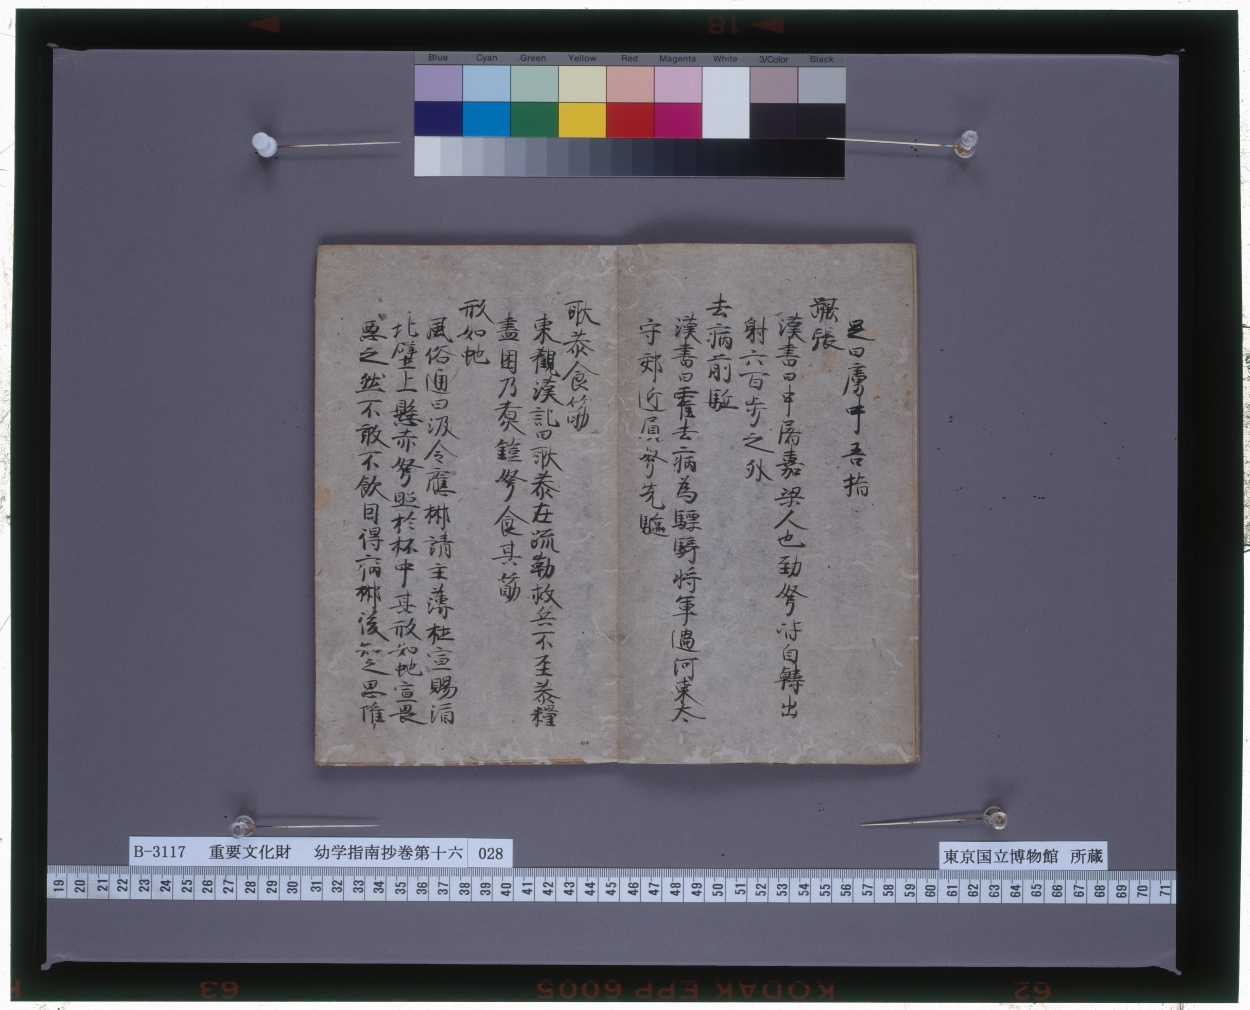 Blue Cyan Green Yellow Red Magenta White 3/Color Black
足曰虜中吾指
蹶張
漢書曰申屠嘉梁人也勁弩
自轉出
射六百步之外
去病前駈
漢書曰霍去病為驃騎将軍過河東太
守郊近負弩先驅
耿恭食筋
東觀漢記曰耿恭在疏勒救兵不至恭糧
盡困乃煮鎧弩食其筋
形如虵
風俗通曰汲令應郴請主薄杜宣賜酒
北壁上懸赤弩照於杯中其形如虵宣畏
惡之然不敢不飲因得病郴後知之思惟
B-3117 重要文化財 幼学指南抄巻第十六 028
東京国立博物館 所蔵
19 20 21 22 23 24 25 26 27 28 29 30 31 32 33 34 35 36 37 38 39 40 41 42 43 44 45 46 47 48 49 50 51 52 53 54 55 56 57 58 59 60 61 62 63 64 65 66 67 68 69 70 71
18
63
KODAK EPP 6005
62